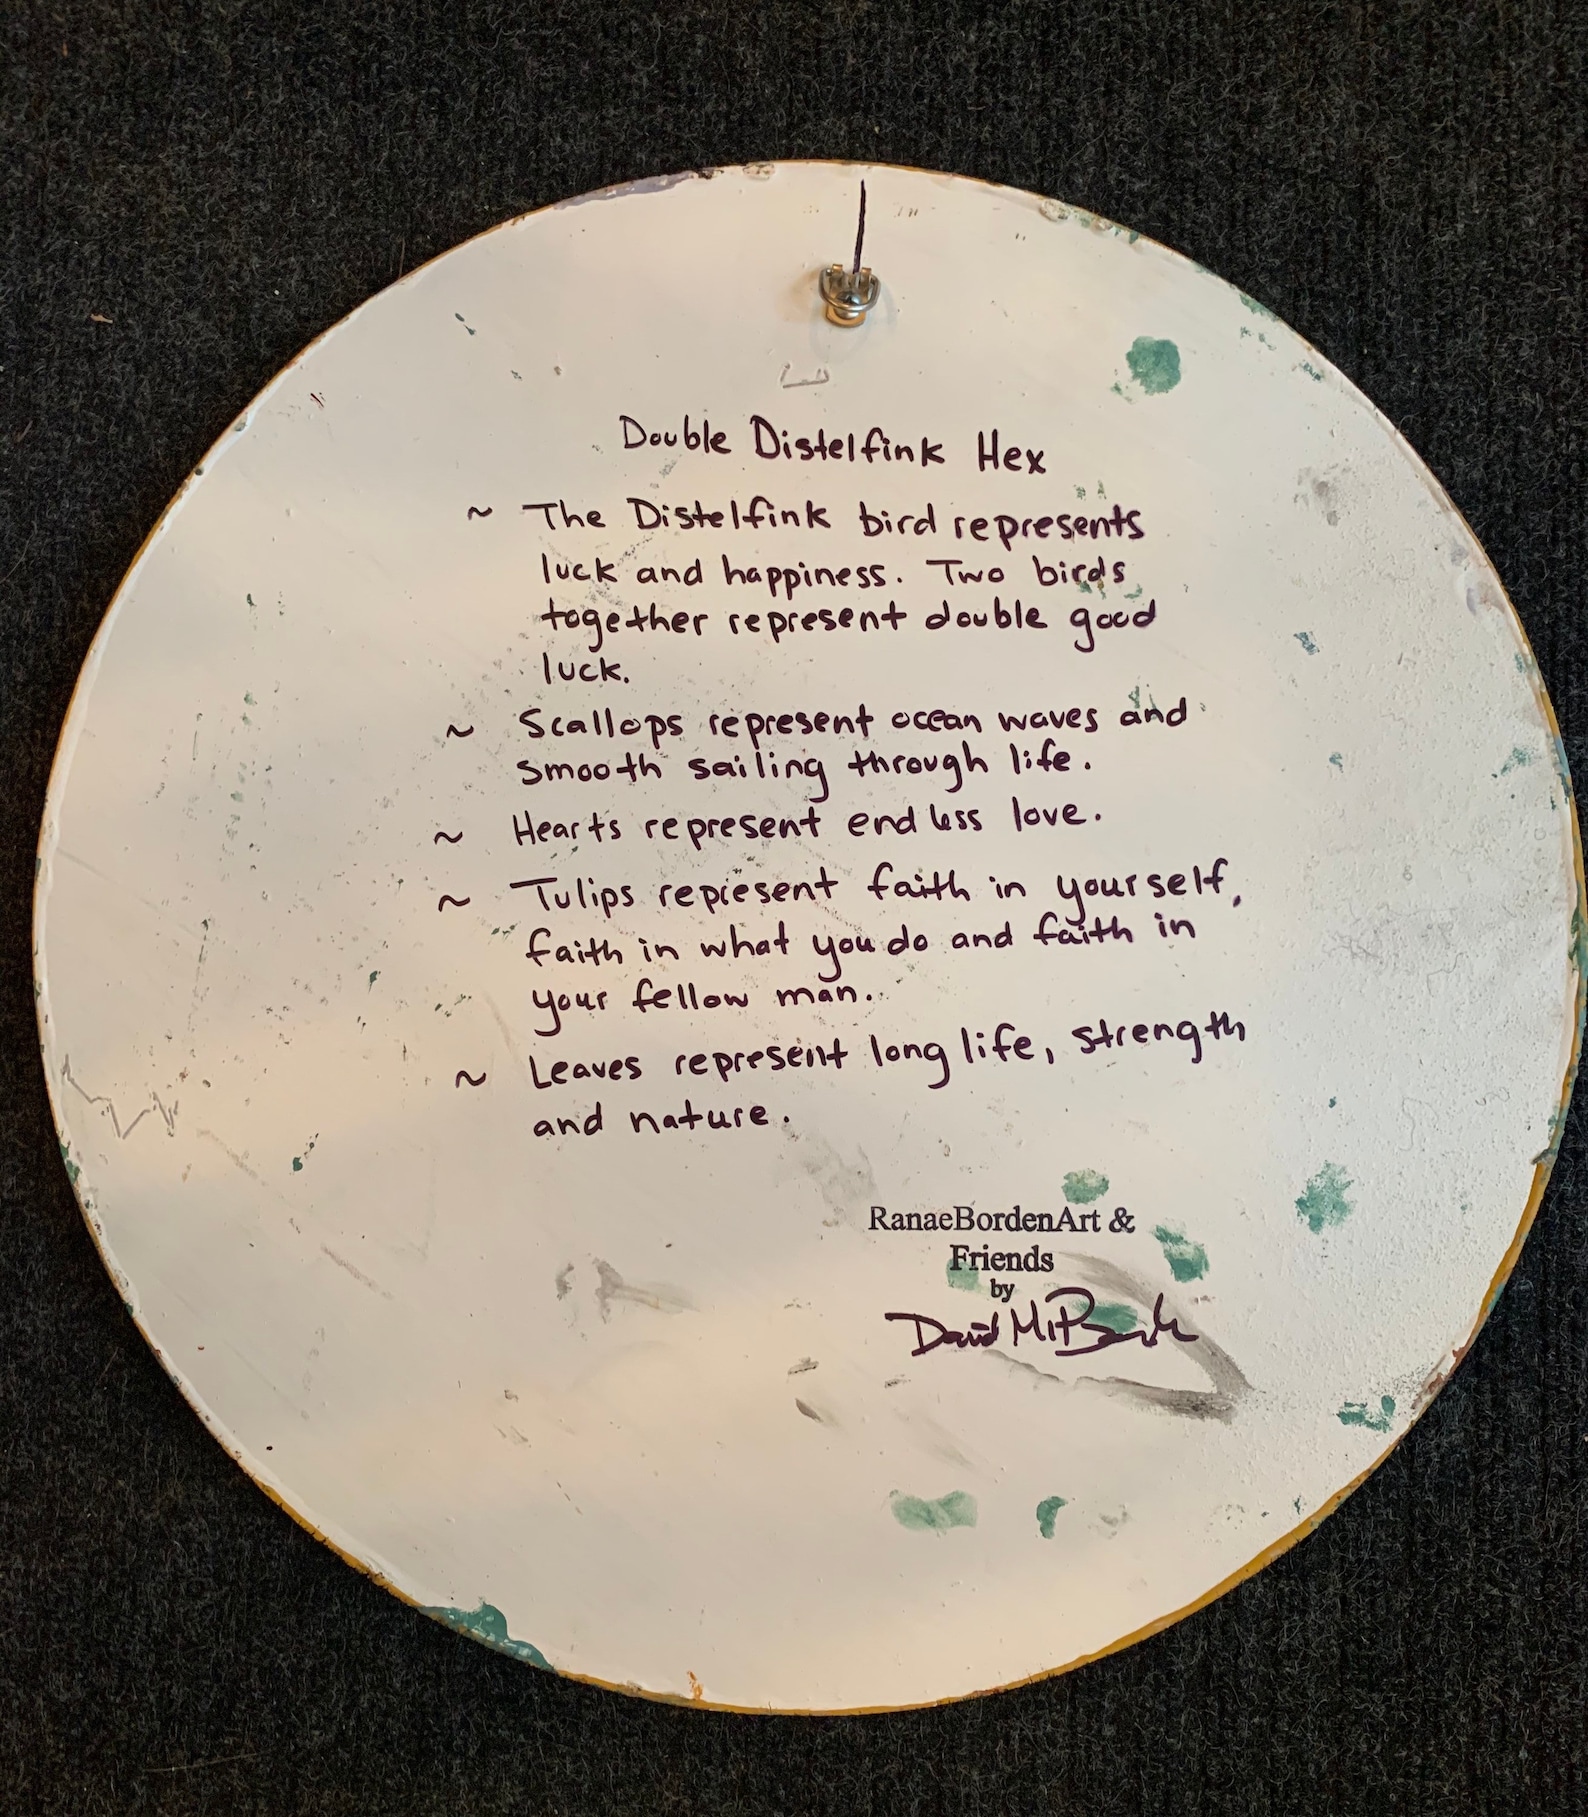 Double Distelfink Hex
~ The Distelfink bird represents
luck and happiness. Two birds
together represent double good
luck.
~ Scallops represent ocean waves and
smooth sailing through life.
~ Hearts represent endless love.
~ Tulips represent faith in yourself,
faith in what you do and faith in
your fellow man.
~ Leaves represent long life, strength
and nature.
RanaeBordenArt &
Friends
by
David M